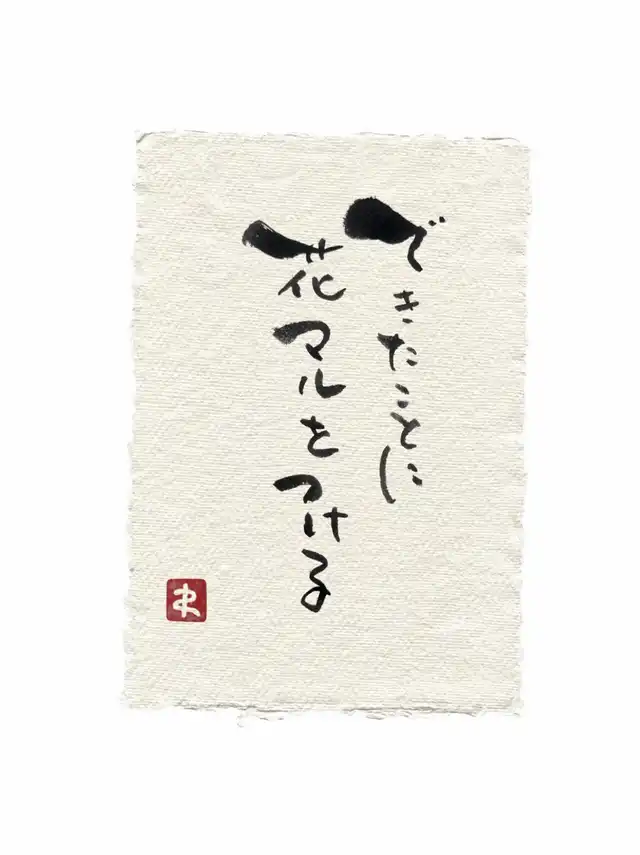 できたことに
花マルをつける